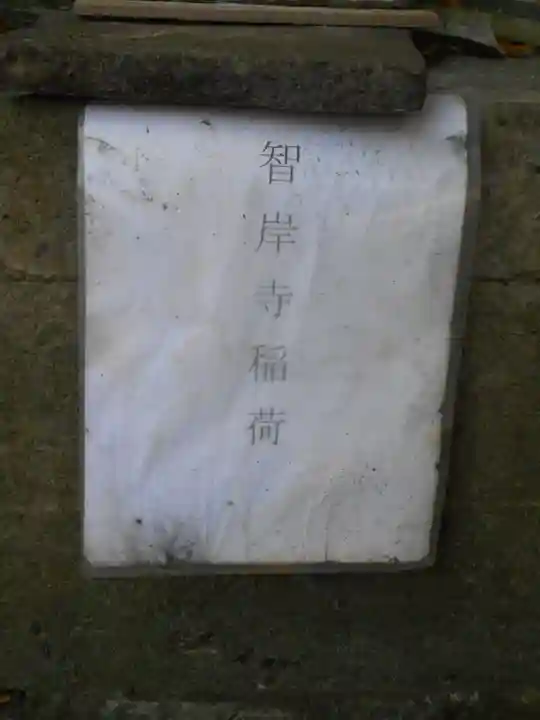 智岸寺稲荷